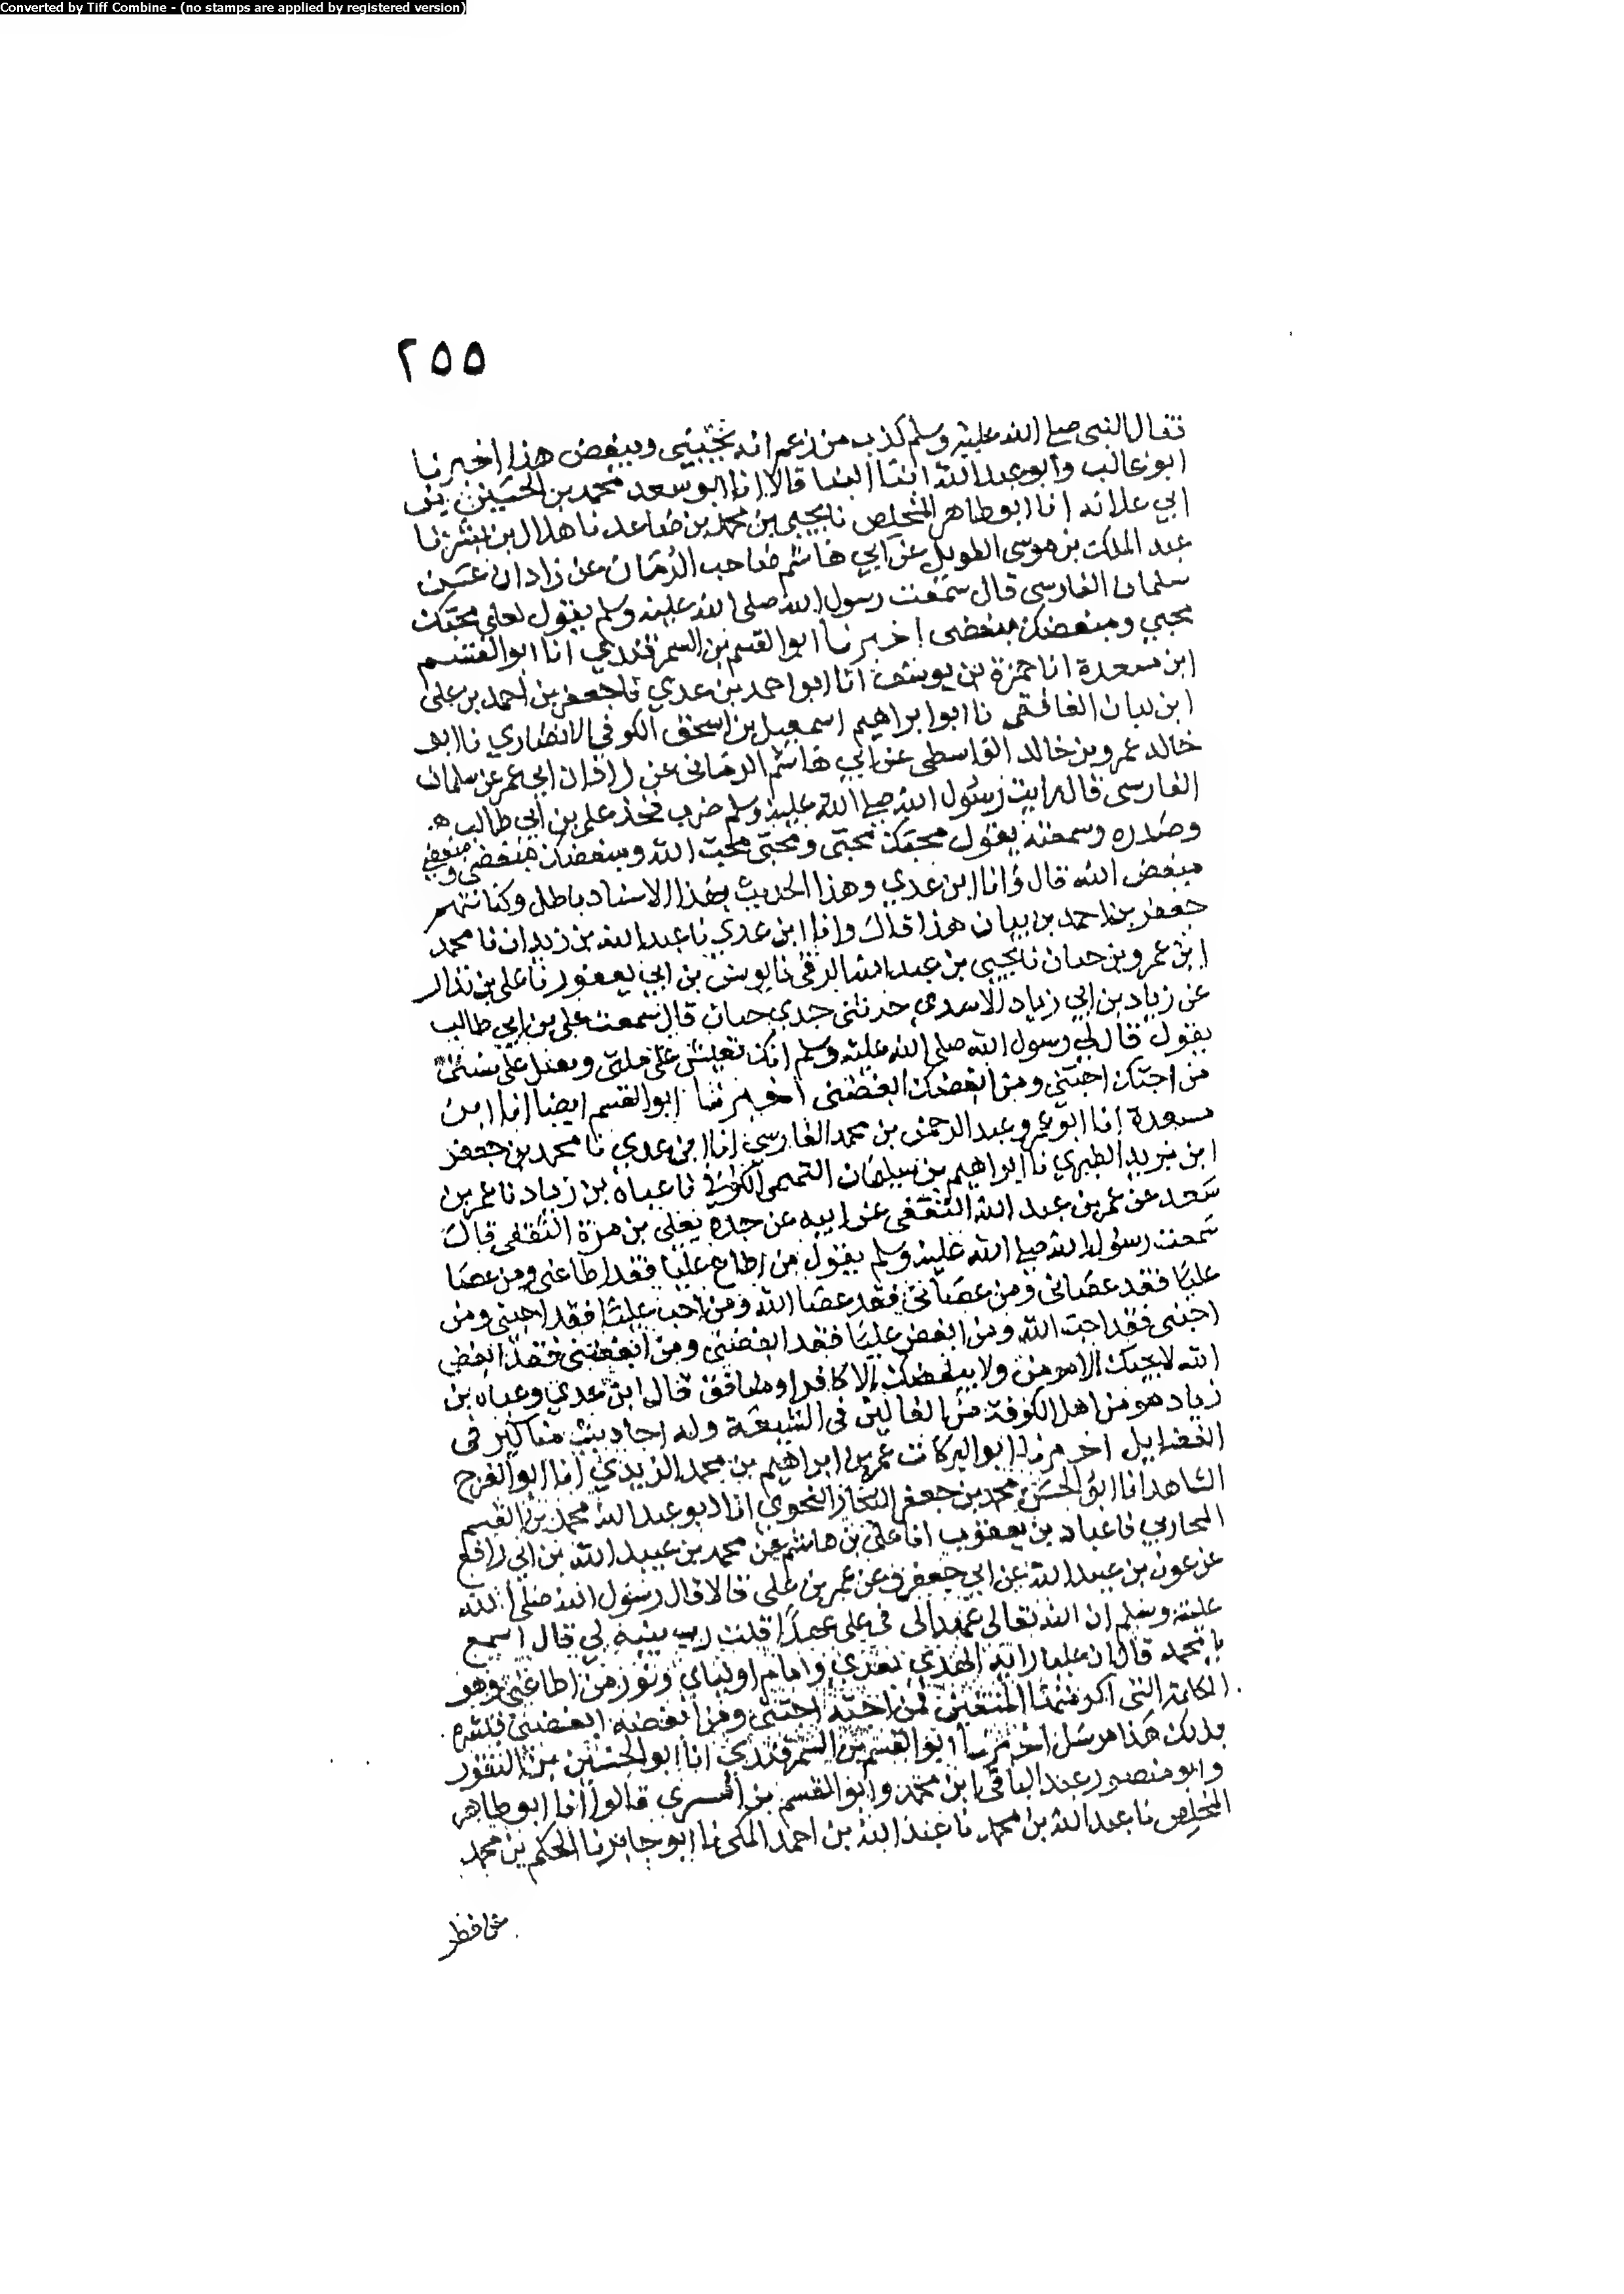 Converted by Tiff Combine - (no stamps are applied by registered version)
٢٥٥
فقال النبى صلى الله عليه وسلم كذب من زعم انه يحبنى ويبغض هذا اخبرنا
ابو غالب وابو عبد الله ابنا البنا قالا انا ابو سعد محمد بن الحسين بن
ابي علانه انا ابو طاهر المخلص نا يحيى بن محمد بن صاعد نا هلال بن بشر نا
عبد الملك بن موسى الطويل عن ابي هاشم صاحب الرمان عن زاذان عن
سلمان الفارسي قال سمعت رسول الله صلى الله عليه وسلم يقول لعلي محبك
محبي ومبغضك مبغضى اخبرنا ابو القسم بن السمرقندي انا ابو القسم
ابن مسعدة انا حمزة بن يوسف انا ابو احمد بن عدي نا جعفر بن احمد بن على
ابن بيان الغافقى نا ابو ابراهيم اسمعيل بن اسحق الكوفي الانصاري نا ابو
خالد عمرو بن خالد الواسطى عن ابي هاشم الرمانى عن زاذان ابي عمر عن سلمان
الفارسى قال رايت رسول الله صلى الله عليه وسلم ضرب فخذ على بن ابي طالب
وصدره وسمعته يقول محبك محبى ومحبى محب الله ومبغضك مبغضى ومبغضي
مبغض الله قال وانا ابن عدي وهذا الحديث بهذا الاسناد باطل وكنا نتهم
جعفر بن احمد بن بيان هذا قال وانا ابن عدي نا عبد الله بن زيدان نا محمد
ابن عمرو بن حنان نا يحيى بن عبد الرقى نا يونس بن ابي يعفور نا على بن نزار
عن زياد بن ابي زياد الاسدي حدثنى جدي حنان قال سمعت على بن ابي طالب
يقول قال لي رسول الله صلى الله عليه وسلم انك تعيش على ملتى وتقتل على سنتى
من احبك احبنى ومن ابغضك ابغضنى اخبرنا ابو القسم ايضا انا ابن
مسعدة انا ابو عمرو عبد الرحمن بن محمد الفارسي انا ابن عدي نا محمد بن جعفر
ابن يزيد الطبري نا ابراهيم بن سليمان التميمى الكوفي نا عباه بن زياد نا عمر بن
سعد عن عمر بن عبد الله الثقفى عن ابيه عن جده يعلى بن مرة الثقفى قال
سمعت رسول الله صلى الله عليه وسلم يقول من اطاع عليا فقد اطاعنى ومن عصا
عليا فقد عصانى ومن عصانى فقد عصا الله ومن احب عليا فقد احبنى ومن
احبنى فقد احب الله ومن ابغض عليا فقد ابغضنى ومن ابغضنى فقد ابغض
الله لا يحبك الا مومن ولا يبغضك الا كافر او منافق قال ابن عدي وعباه بن
زياد هو من اهل الكوفة من الغالين فى الشيعة وله احاديث مناكير فى
الفضايل اخبرنا ابو البركات عمر بن ابراهيم بن محمد الزيدي انا ابو الفرج
الشاهد انا ابو الحسن محمد بن جعفر النجار النحوي انا ابو عبد الله محمد بن القسم
المحاربي نا عباد بن يعقوب انا على بن هاشم عن محمد بن عبيد الله بن ابي رافع
عن عون بن عبيد الله عن ابي جعفر وعن عمر بن على قالا قال رسول الله صلى الله
عليه وسلم ان الله تعالى عهد الى فى على عهدا قلت رب بينه لي قال اسمع
يا محمد قال ان عليا راية الهدي بعدي وامام اوليائي ونور من اطاعنى وهو
الكلمة التى الزمتها المتقين من احبه احبنى ومن ابغضه ابغضنى فبشره
بذلك هذا مرسل اخبرنا ابو القسم بن السمرقندي انا ابو الحسين بن النقور
وابو منصور عبد الباقى ابن محمد وابو القسم بن البسري قالوا انا ابو طاهر
المخلص نا عبد الله بن محمد نا عبد الله بن احمد المكى نا ابو جابر نا الحكم بن محمد